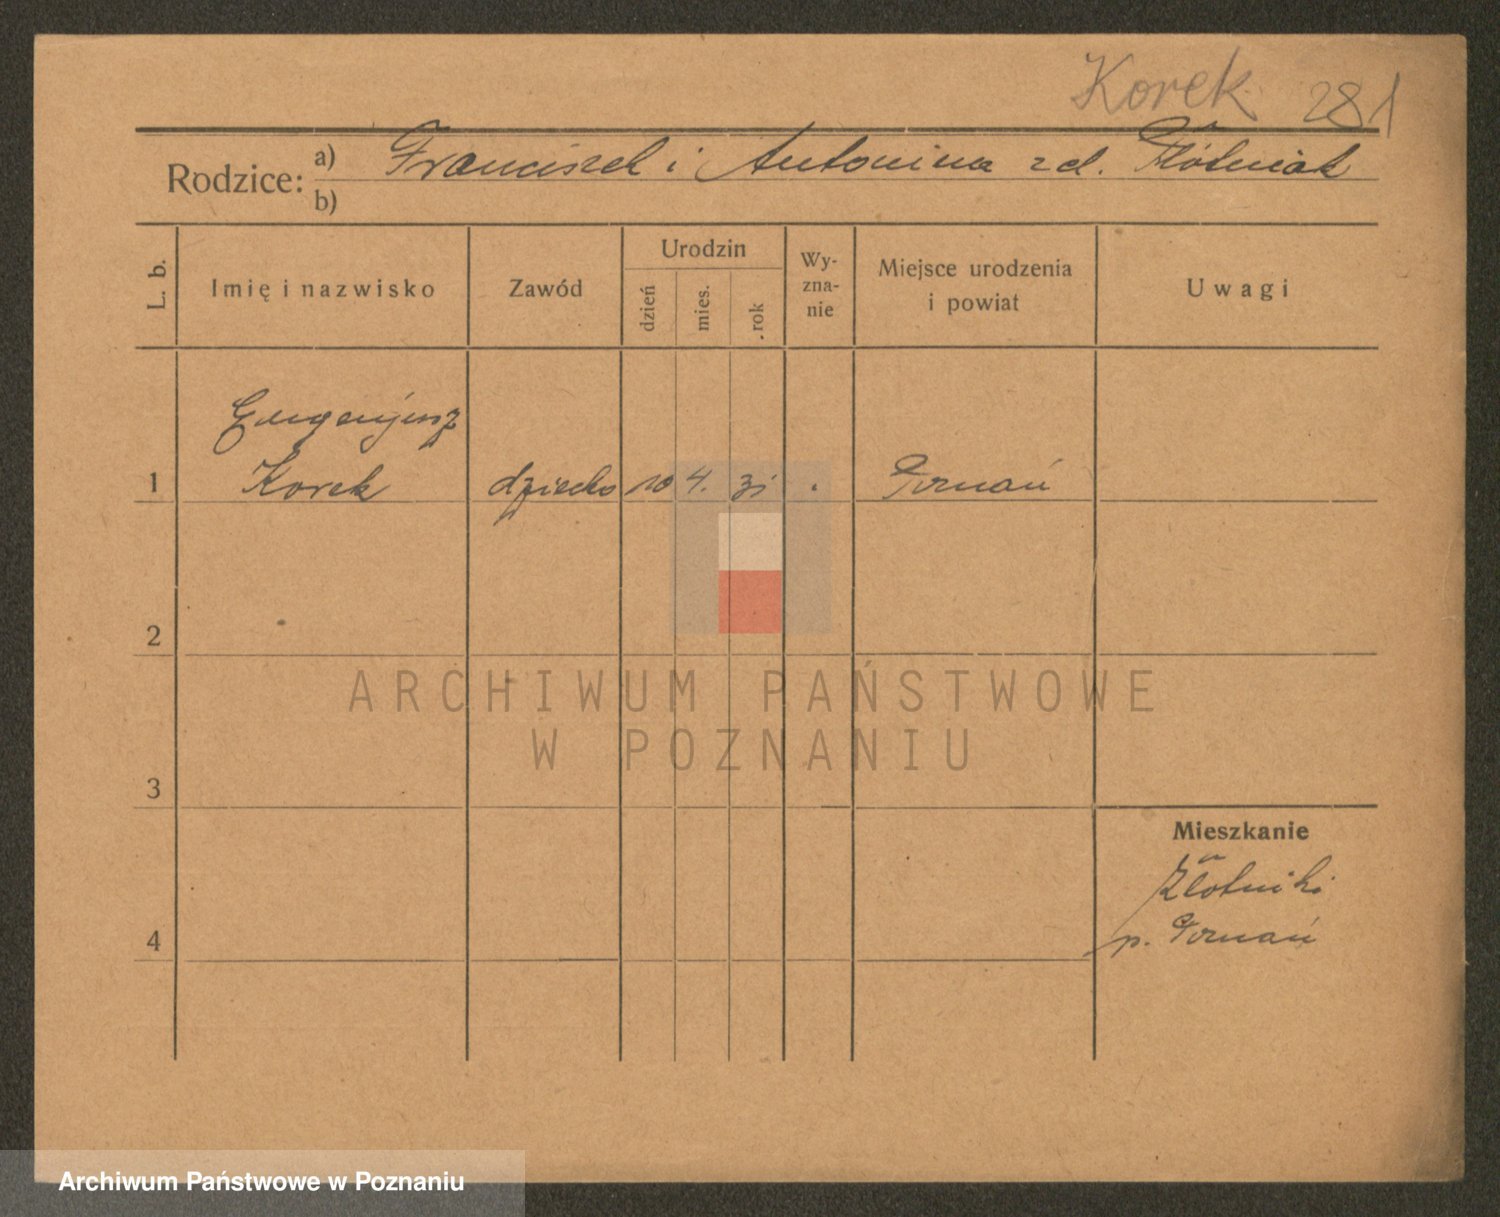 Korek 281
Rodzice: a) Franciszek i Antonina z d.
b)
L. b.
Imię i nazwisko
Zawód
Urodzin
dzień
mies.
rok
Wy-
zna-
nie
Miejsce urodzenia
i powiat
Uwagi
Eugenjusz
1 Korek dziecko 10 4. 31 . Poznań
2
3
4
Mieszkanie
Złotniki
p. Poznań
ARCHIWUM PAŃSTWOWE
W POZNANIU
Archiwum Państwowe w Poznaniu